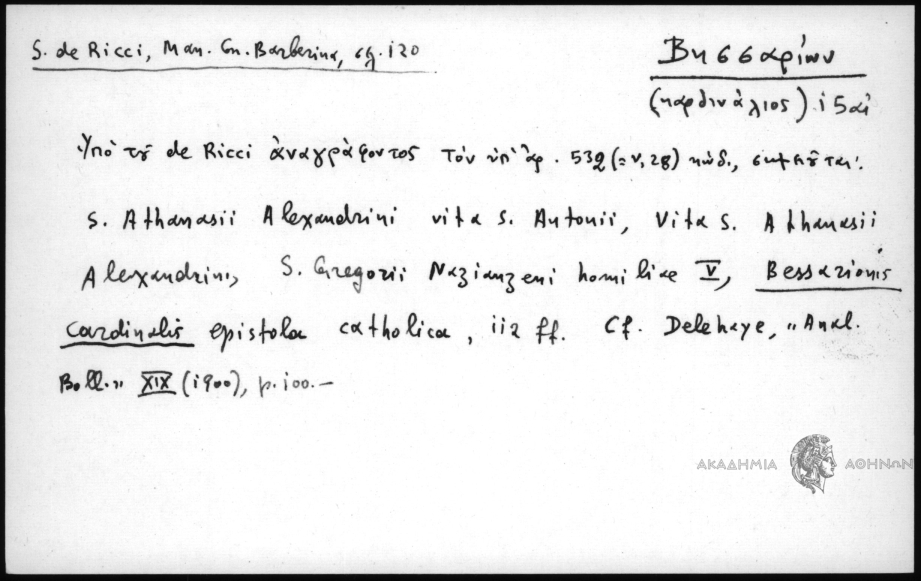 S. de Ricci, Man. Gr. Barberina, σg. 120
Βησσαρίων
(καρδινάλιος). 15 αἰ
Ὑπὸ τοῦ de Ricci ἀναγράφοντος τὸν ὑπ' ἀρ. 532 (= V, 28) κώδ., σημειοῦται:
S. Athanasii Alexandrini vita S. Antonii, Vita S. Athanasii
Alexandrini, S. Gregorii Nazianzeni homiliae V, Bessarionis
Cardinalis epistola catholica, 112 ff. Cf. Delehaye, „Anal.
Boll.” XIX (1900), p. 100.—
ΑΚΑΔΗΜΙΑ ΑΘΗΝΩΝ